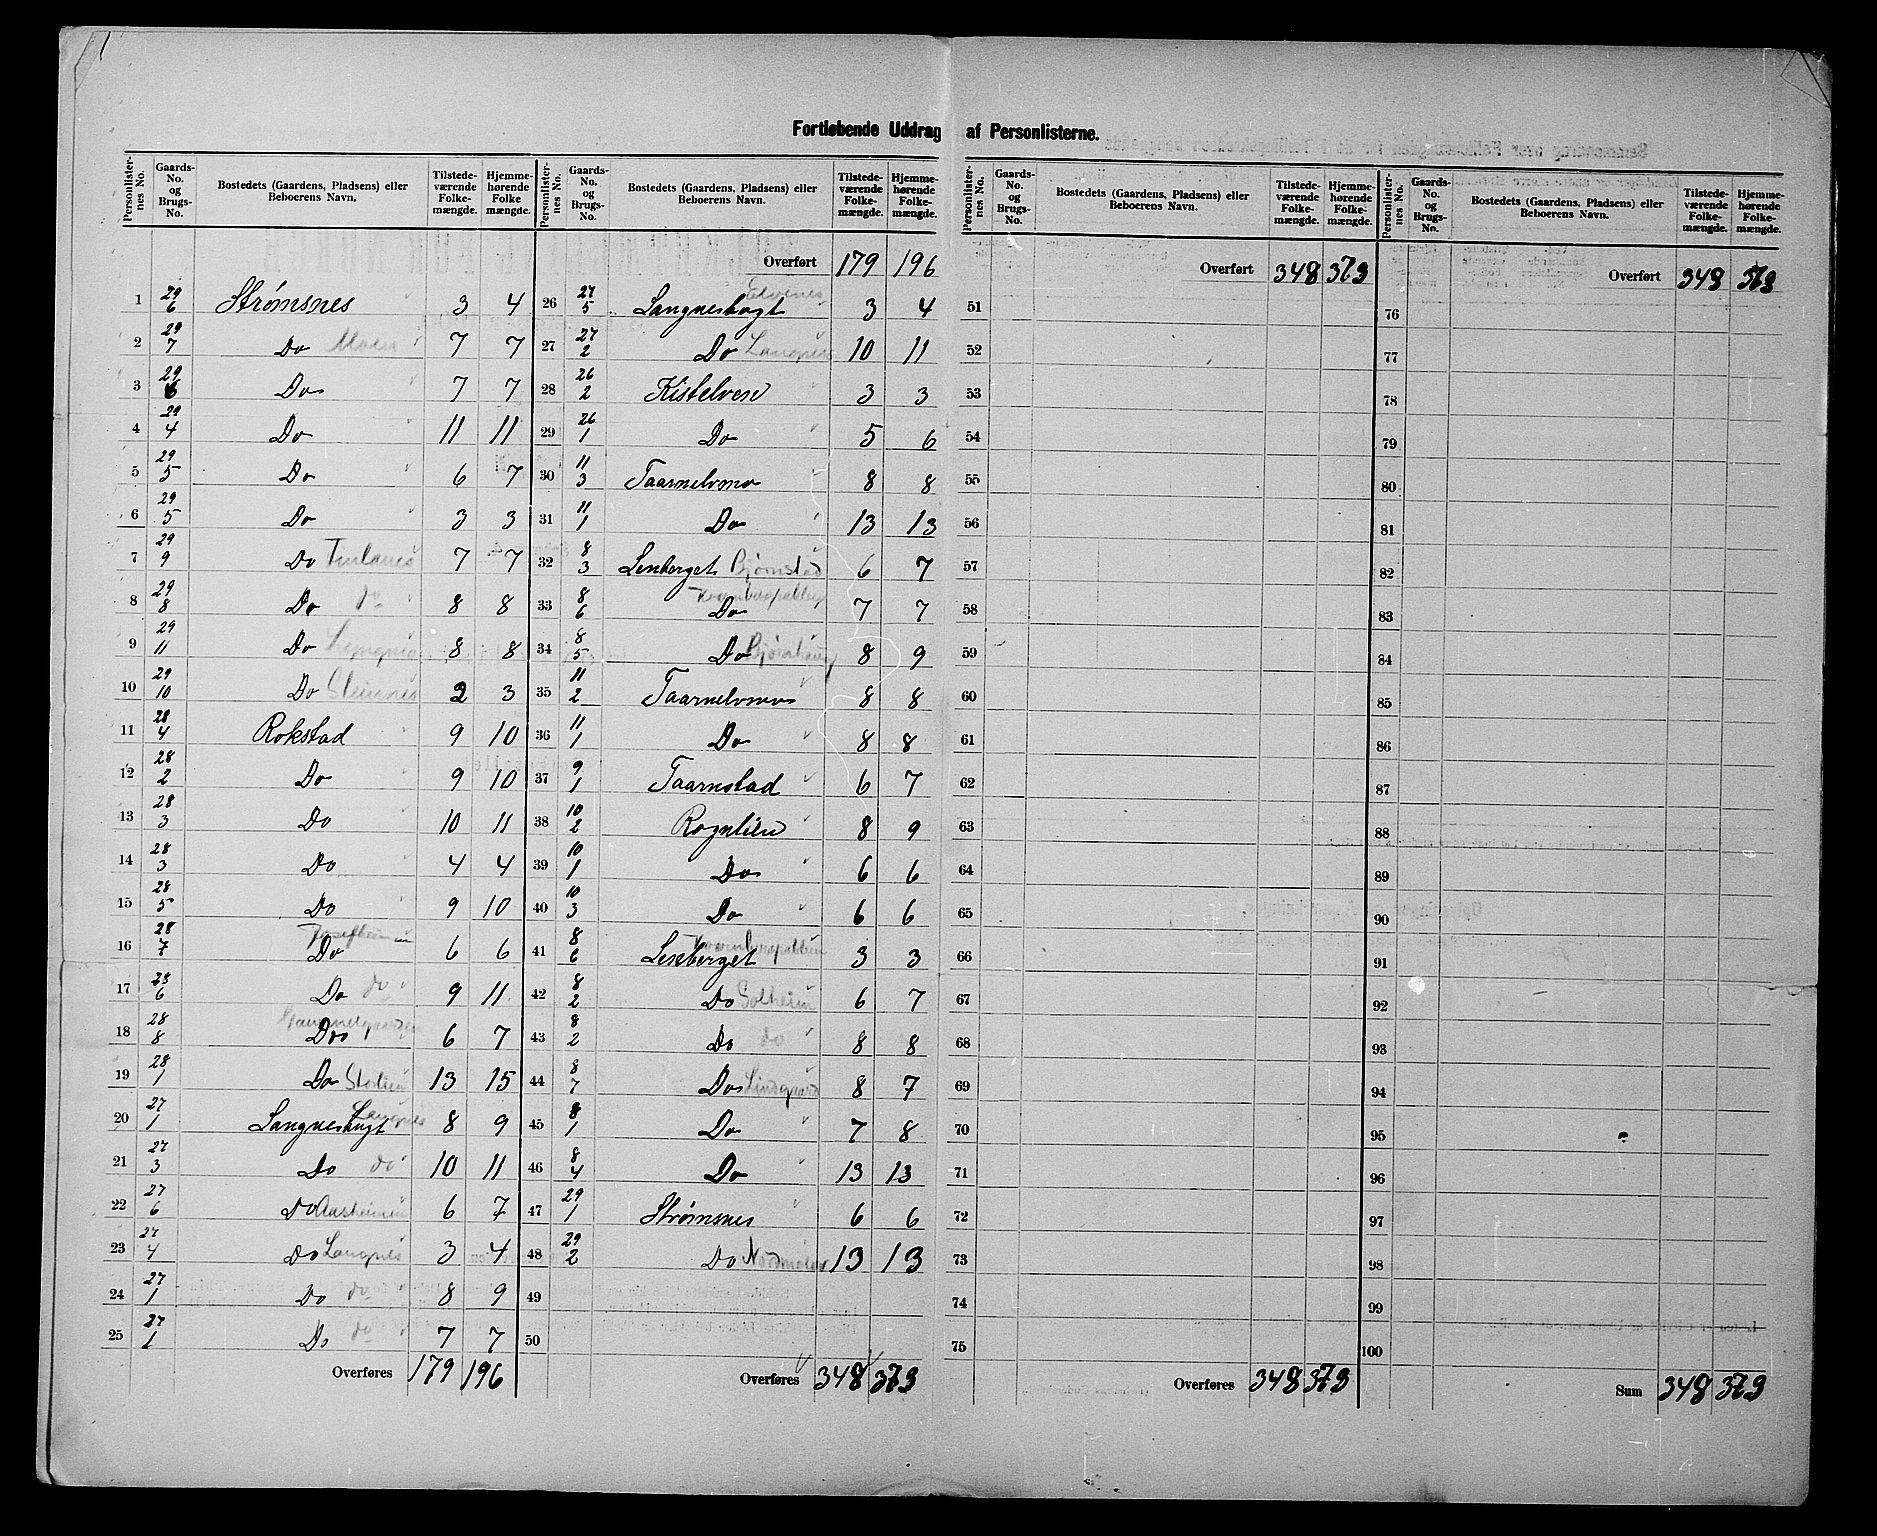 Fortløbende Uddrag af Personlisterne.
Personlister-nes No. | Gaards-No. og Brugs-No. | Bostedets (Gaardens, Pladsens) eller Beboerens Navn. | Tilstede-værende Folke-mængde. | Hjemme-hørende Folke mængde.
1 | 29/6 | Strømsnes | 3 | 4
2 | 29/7 | Do | 7 | 7
3 | 29/6 | Do | 7 | 7
4 | 29/4 | Do | 11 | 11
5 | 29/5 | Do | 6 | 7
6 | 29/5 | Do | 3 | 3
7 | 29/9 | Do | 7 | 7
8 | 29/8 | Do do | 8 | 8
9 | 29/11 | Do | 8 | 8
10 | 29/10 | Do Steinnes | 2 | 3
11 | 28/4 | Rokstad | 9 | 10
12 | 28/2 | Do | 9 | 10
13 | 28/3 | Do | 10 | 11
14 | 28/3 | Do | 4 | 4
15 | 28/5 | Do | 9 | 10
16 | 28/7 | Do | 6 | 6
17 | 28/6 | Do do | 9 | 11
18 | 28/8 | Do | 6 | 7
19 | 28/1 | Do | 13 | 15
20 | 27/1 | Langnesbugt Langnes | 8 | 9
21 | 27/3 | Do do | 10 | 11
22 | 27/6 | Do Aasheim | 6 | 7
23 | 27/4 | Do Langnes | 3 | 4
24 | 27/1 | Do do | 8 | 9
25 | 27/1 | Do do | 7 | 7
Overføres 179 196
Personlister-nes No. | Gaards-No. og Brugs-No. | Bostedets (Gaardens, Pladsens) eller Beboerens Navn. | Tilstede-værende Folke-mængde. | Hjemme-hørende Folke-mængde.
Overført 179 196
26 | 27/5 | Langnesbugt Elvenes | 3 | 4
27 | 27/2 | Do Langnes | 10 | 11
28 | 26/2 | Kistelven | 3 | 3
29 | 26/1 | Do | 5 | 6
30 | 11/3 | Taarnelvmo | 8 | 8
31 | 11/1 | Do | 13 | 13
32 | 8/3 | Lenberget Bjørnstad | 6 | 7
33 | 8/6 | Do | 7 | 7
34 | 8/5 | Do Bjørnhaug | 8 | 9
35 | 11/2 | Taarnelvmo | 8 | 8
36 | 11/1 | Do | 8 | 8
37 | 9/1 | Taarnstad | 6 | 7
38 | 10/2 | Rognlien | 8 | 9
39 | 10/1 | Do | 6 | 6
40 | 10/3 | Do | 6 | 6
41 | 8/6 | Lenberget | 3 | 3
42 | 8/2 | Do Solheim | 6 | 7
43 | 8/2 | Do do | 8 | 8
44 | 8/7 | Do Lindgaard | 8 | 7
45 | 8/1 | Do | 7 | 8
46 | 8/4 | Do | 13 | 13
47 | 29/1 | Strømsnes | 6 | 6
48 | 29/2 | Do Nordmolen | 13 | 13
49
50
Overføres 348 373
Personlister-nes No. | Gaards-No. og Brugs-No. | Bostedets (Gaardens, Pladsens) eller Beboerens Navn. | Tilstede-værende Folke-mængde. | Hjemme-hørende Folke-mængde.
Overført 348 373
51
52
53
54
55
56
57
58
59
60
61
62
63
64
65
66
67
68
69
70
71
72
73
74
75
Overføres 348 373
Personlister-nes No. | Gaards-No. og Brugs-No. | Bostedets (Gaardens, Pladsens) eller Beboerens Navn. | Tilstede-værende Folke-mængde. | Hjemme-hørende Folke-mængde.
Overført 348 373
76
77
78
79
80
81
82
83
84
85
86
87
88
89
90
91
92
93
94
95
96
97
98
99
100
Sum 348 373